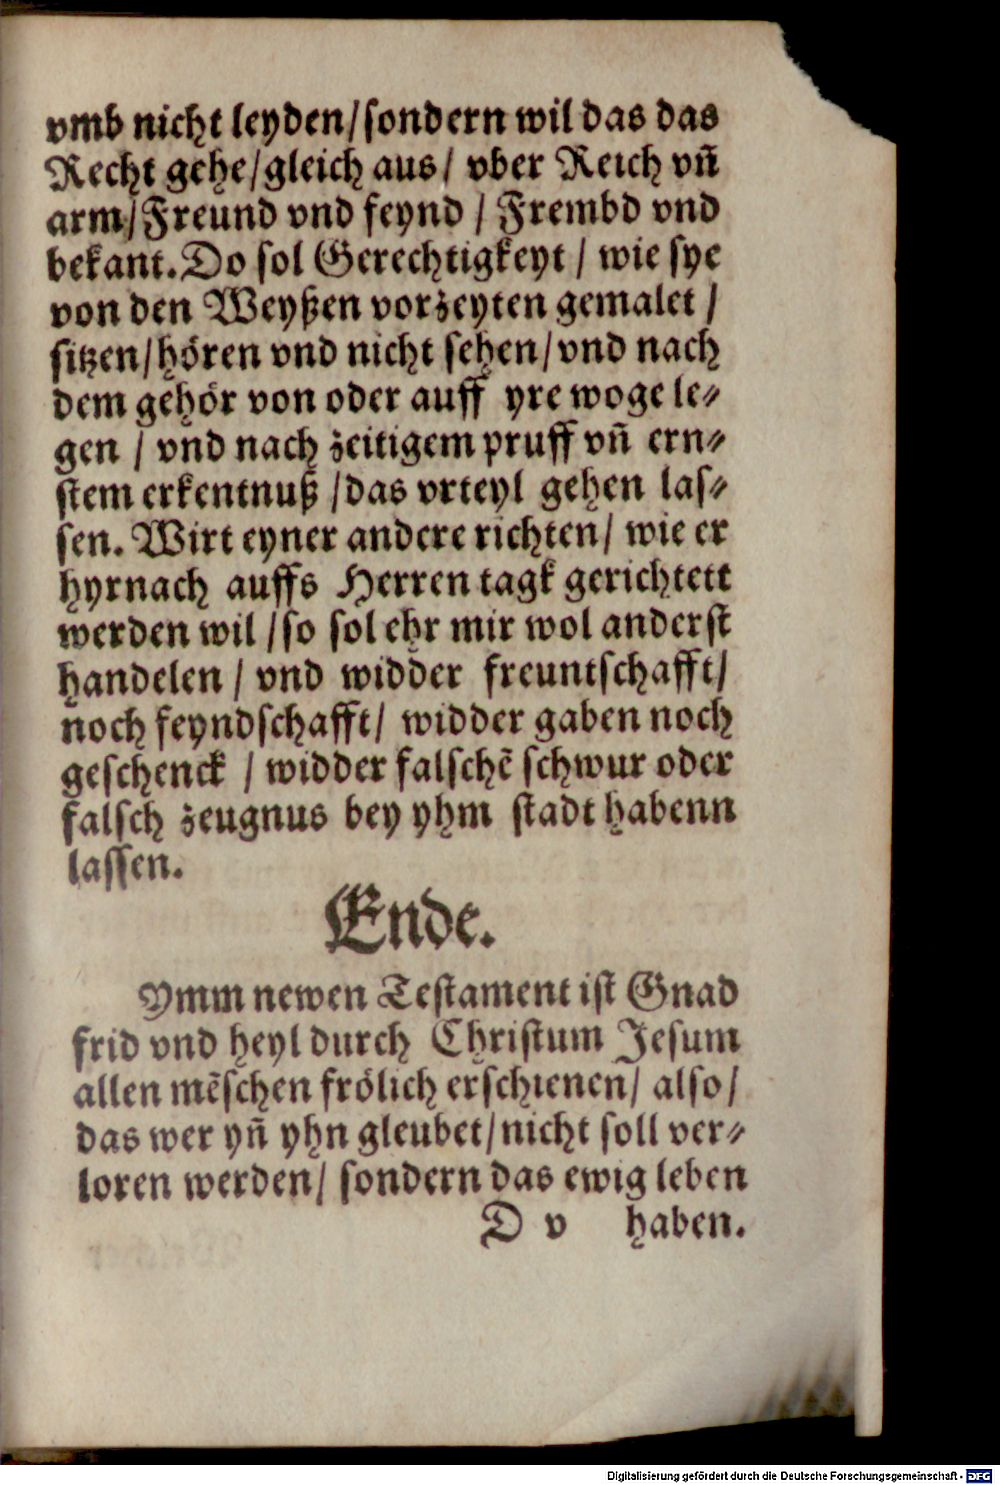 vmb nicht leyden/sondern wil das das
Recht gehe/gleich aus/ vber Reich vñ
arm/Freund vnd feynd / Frembd vnd
bekant. Do sol Gerechtigkeyt / wie sye
von den Weyßen vorzeyten gemalet /
sitzen/hören vnd nicht sehen/vnd nach
dem gehör von oder auff yre woge le⸗
gen / vnd nach zeitigem pruff vñ ern⸗
stem erkentnuß /das vrteyl gehen las⸗
sen. Wirt eyner andere richten/ wie er
hyrnach auffs Herren tagk gerichtett
werden wil /so sol ehr mir wol anderst
handelen / vnd widder freuntschafft/
noch feyndschafft/ widder gaben noch
geschenck / widder falschẽ schwur oder
falsch zeugnus bey yhm stadt habenn
lassen.
Ende.
Ymm newen Testament ist Gnad
frid vnd heyl durch Christum Jesum
allen mẽschen frölich erschienen/ also/
das wer yñ yhn gleubet/nicht soll ver⸗
loren werden/ sondern das ewig leben
D v haben.
Digitalisierung gefördert durch die Deutsche Forschungsgemeinschaft - DFG